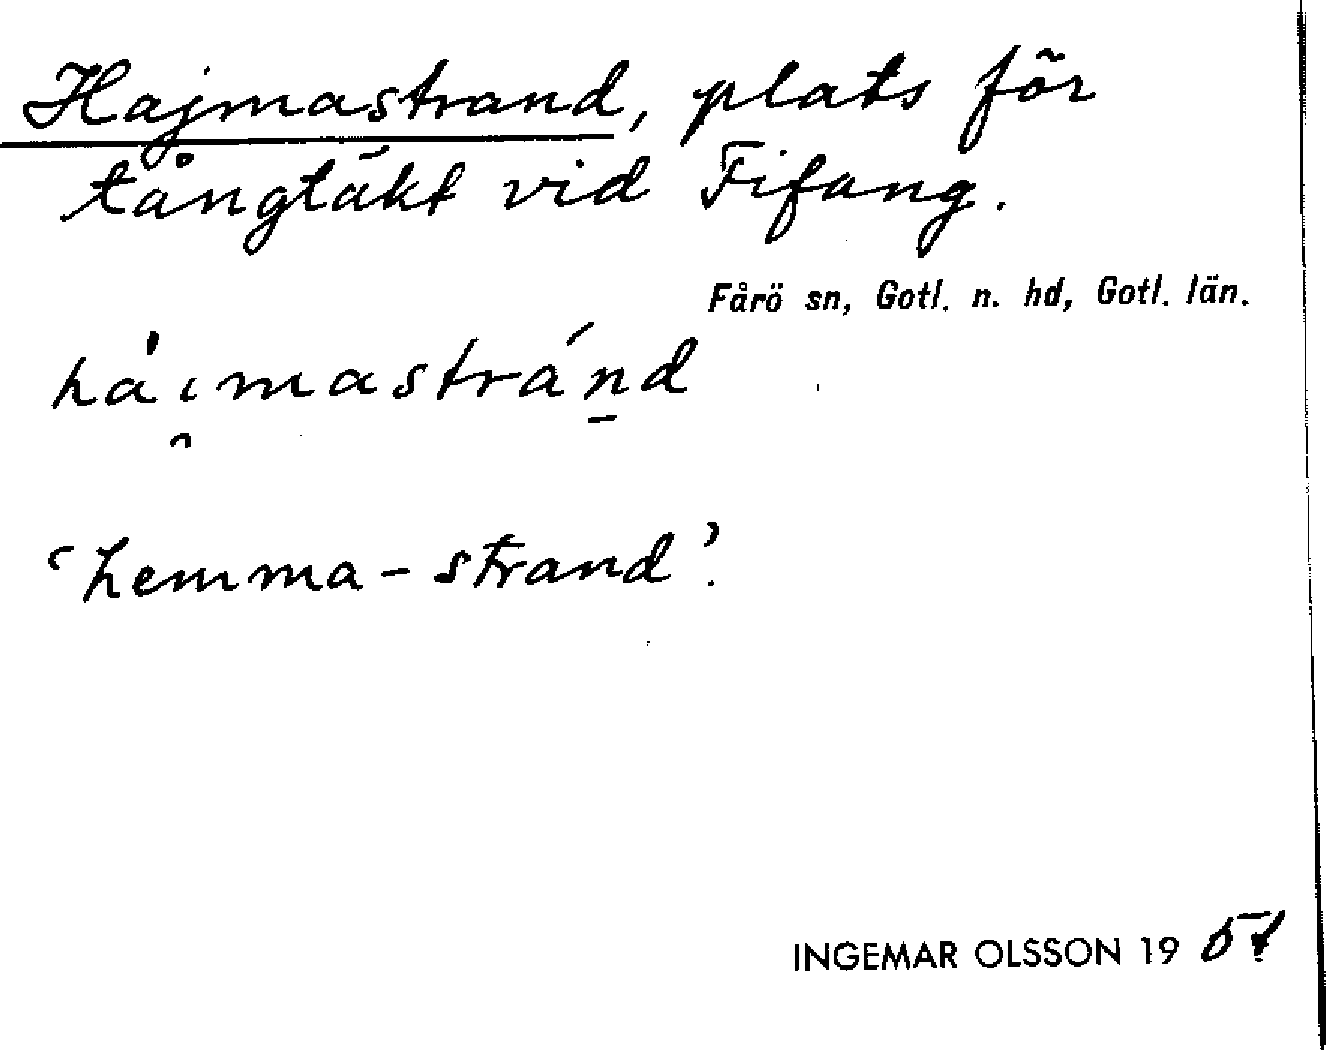 Hajmastrand, plats för
tångtäkt vid Fifang.
Fårö sn, Gotl. n. hd, Gotl. län.
hái̯mastrán̠d
‘hemma-strand’.
INGEMAR OLSSON 19